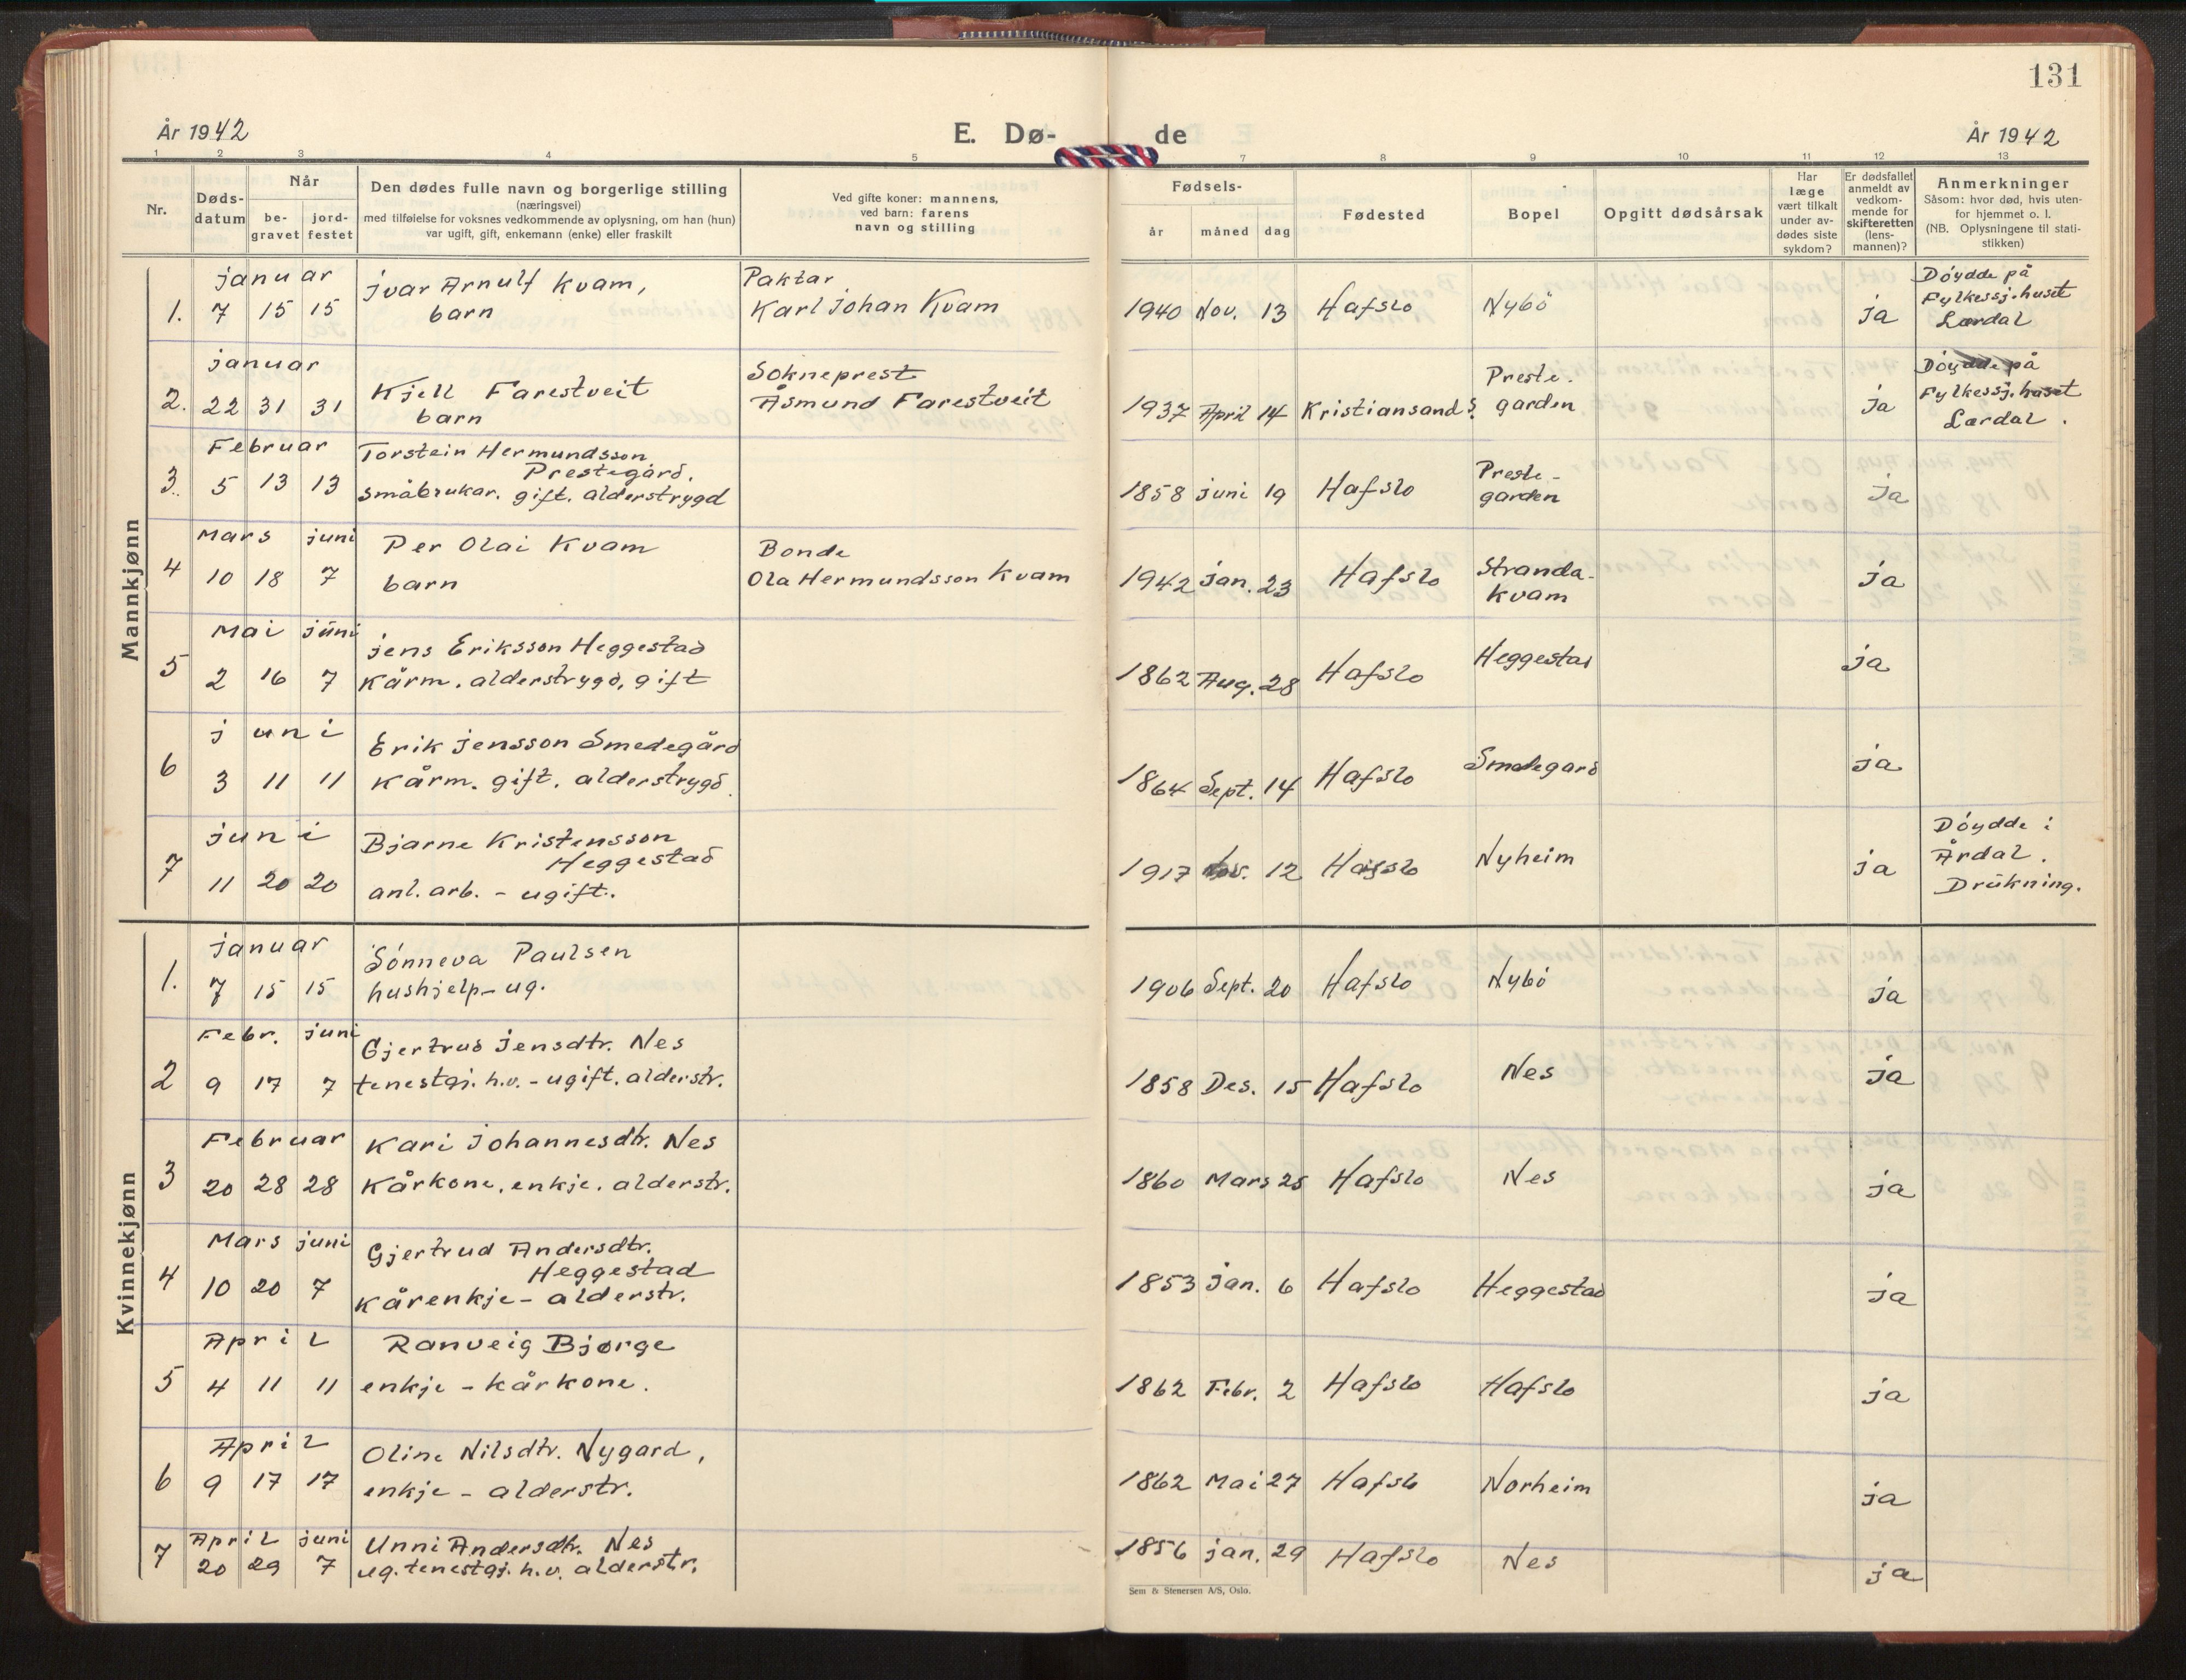 131
År 1942
E. Dø-
de
År 1942
1 2 3 4 5 7 8 9 10 11 12 13
Nr.
Døds-
datum
Når
be-
gravet
jord-
festet
Den dødes fulle navn og borgerlige stilling
(næringsvei)
med tilføielse for voksnes vedkommende av oplysning, om han (hun)
var ugift, gift, enkemann (enke) eller fraskilt
Ved gifte koner: mannens,
ved barn: farens
navn og stilling
Fødsels-
år måned dag
Fødested
Bopel
Opgitt dødsårsak
Har
læge
vært tilkalt
under av-
dødes siste
sykdom?
Er dødsfallet
anmeldt av
vedkom-
mende for
skifteretten
(lens-
mannen)?
Anmerkninger
Såsom: hvor død, hvis uten-
for hjemmet o. l.
(NB. Oplysningene til stati-
stikken)
Mannkjønn
januar
1. 7 15 15
Ivar Arnulf Kvam,
barn
Paktar
Karl Johan Kvam
1940 Nov. 13 Hafslo Nybö ja
Döydde på
Fylkessj.huset
Lærdal
januar
2. 22 31 31
Kjell Farestveit
barn
Sokneprest
Åsmund Farestveit
1937 April 14 Kristiansand S.
Preste-
garden
ja
Döydde på
Fylkessj.huset
Lærdal.
Februar
3. 5 13 13
Torstein Hermundsson
Prestegård.
småbrukar. gift. alderstrygd
1858 juni 19 Hafslo
Preste-
garden
ja
Mars juni
4 10 18 7
Per Olai Kvam
barn
Bonde
Ola Hermundsson Kvam
1942 jan. 23 Hafslo
Stranda-
kvam
ja
Mai juni
5 2 16 7
Jens Eriksson Heggestad
Kårm. alderstrygd, gift
1862 Aug. 28 Hafslo Heggestad ja
juni
6 3 11 11
Erik Jensson Smedegård
Kårm. gift. alderstrygd.
1864 Sept. 14 Hafslo Smedegard ja
juni
7 11 20 20
Bjarne Kristensson
Heggestad
anl. arb. - ugift.
1917 12 Hafslo Nyheim ja
Döydde i
Årdal.
Drukning.
Kvinnekjønn
januar
1. 7 15 15
Sönneva Paulsen
hushjelp - ug.
1906 Sept. 20 Hafslo Nybö ja
Febr. juni
2 9 17 7
Gjertrud Jensdtr. Nes
tenestgj. h.v. - ugift. alderstr.
1858 Des. 15 Hafslo Nes ja
Februar
3 20 28 28
Kari Johannesdtr. Nes
Kårkone, enkje. alderstr.
1860 Mars 25 Hafslo Nes ja
Mars juni
4 10 20 7
Gjertrud Andersdtr.
Heggestad
Kårenkje - alderstr.
1853 jan. 6 Hafslo Heggestad ja
April
5 4 11 11
Ranveig Bjørge
enkje - kårkone.
1862 Febr. 2 Hafslo Hafslo ja
April
6 9 17 17
Oline Nilsdtr. Nygard,
enkje - alderstr.
1862 Mai 27 Hafslo Norheim ja
April juni
7 20 29 7
Unni Andersdtr. Nes
ug. tenestgj. h.v. alderstr.
1856 jan. 29 Hafslo Nes ja
Sem & Stenersen A/S, Oslo.